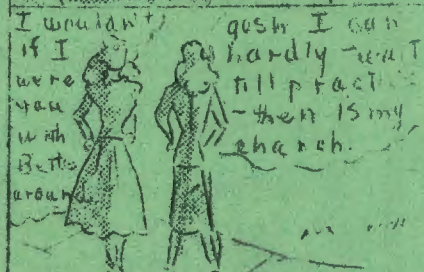 I wouldn't
if I
were
you
with
Bette
around
gosh I can
hardly wait
till pract
-then is my
charch.